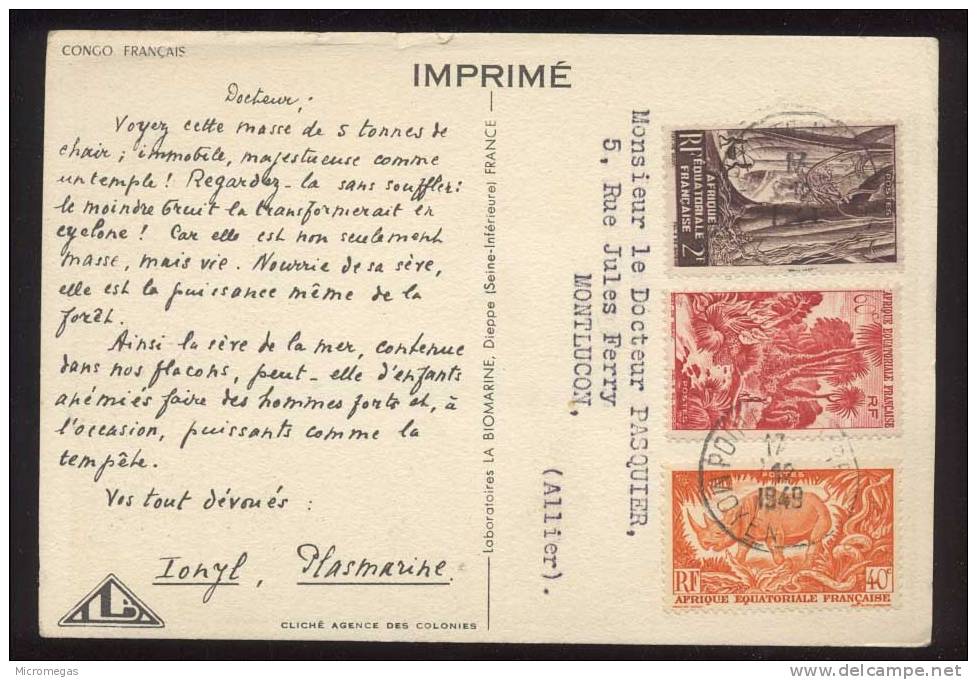 CONGO FRANÇAIS
IMPRIMÉ
Docteur,
Voyez cette masse de 5 tonnes de
chair ; immobile, majestueuse comme
un temple ! Regardez-la sans souffler :
le moindre bruit la transformerait en
cyclone ! Car elle est non seulement
masse, mais vie. Nourrie de sa sève,
elle est la puissance même de la
forêt.
Ainsi la sève de la mer, contenue
dans nos flacons, peut-elle d'enfants
anémiés faire des hommes forts et, à
l'occasion, puissants comme la
tempête.
Vos tout dévoués :
Ionyl, Plasmarine.
CLICHÉ AGENCE DES COLONIES
Laboratoires LA BIOMARINE, Dieppe (Seine-Inférieure) FRANCE
Monsieur le Docteur PASQUIER,
5, Rue Jules Ferry
MONTLUCON,
(Allier).
RF
AFRIQUE
ÉQUATORIALE
FRANÇAISE
2F
POSTES
17
60c
AFRIQUE EQUATORIALE FRANÇAISE
POSTES
RF
POSTES
RF
40c
AFRIQUE EQUATORIALE FRANÇAISE
17
1949
MOYEN
Micromegas
www.delcampe.net